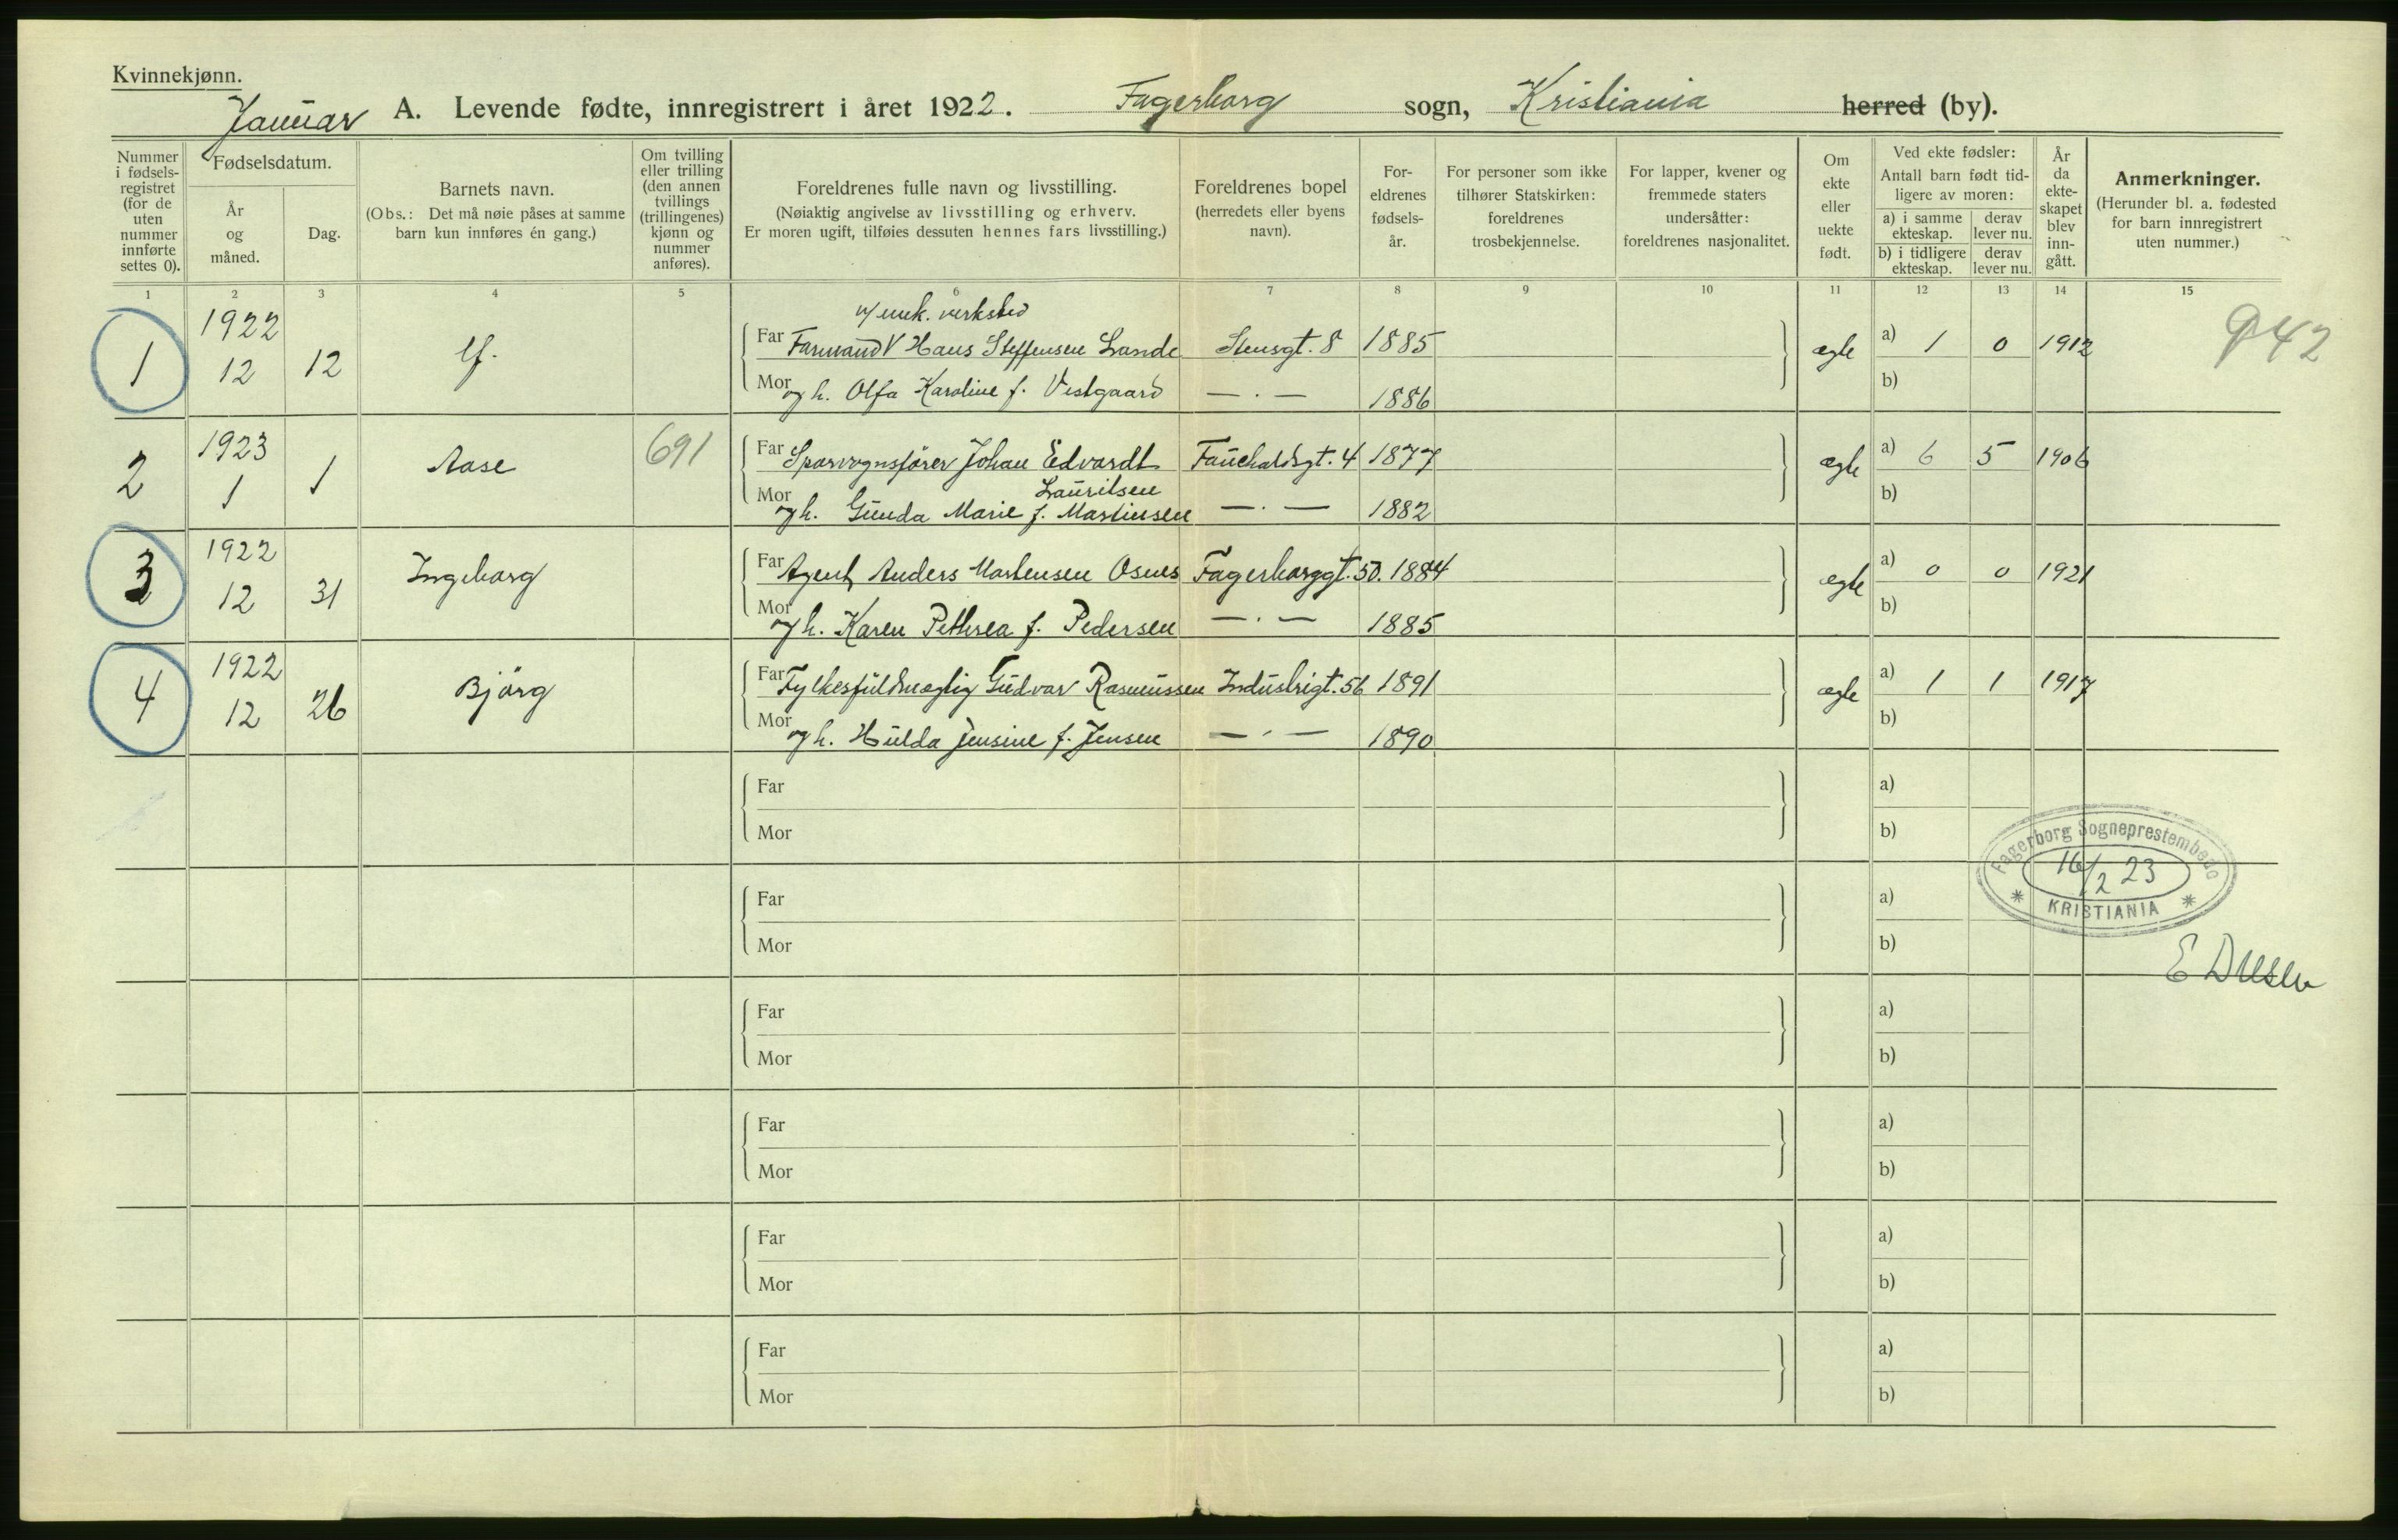 Kvinnekjønn.
Januar A. Levende fødte, innregistrert i året 1922. Fagerborg sogn, Kristiania herred (by).
Nummer i fødsels-registret (for de uten nummer innførte settes 0).
Fødselsdatum.
År og måned.
Dag.
Barnets navn.
(Obs.: Det må nøie påses at samme barn kun innføres én gang.)
Om tvilling eller trilling (den annen tvillings (trillingenes) kjønn og nummer anføres).
Foreldrenes fulle navn og livsstilling.
(Nøiaktig angivelse av livsstilling og erhverv.
Er moren ugift, tilføies dessuten hennes fars livsstilling.)
Foreldrenes bopel
(herredets eller byens navn).
For-eldrenes fødsels-år.
For personer som ikke tilhører Statskirken: foreldrenes trosbekjennelse.
For lapper, kvener og fremmede staters undersåtter: foreldrenes nasjonalitet.
Om ekte eller uekte født.
Ved ekte fødsler:
Antall barn født tid-ligere av moren:
a) i samme ekteskap.
derav lever nu.
b) i tidligere ekteskap.
derav lever nu.
År da ekte-skapet blev inn-gått.
Anmerkninger.
(Herunder bl. a. fødested for barn innregistrert uten nummer.)
1 2 3 4 5 6 7 8 9 10 11 12 13 14 15
v/ mek. verksted
1 1922 12 12 Uf. Far Formand V Hans Steffensen Lande Stensgt. 8 1885 ægte a) 1 0 1912 942
Mor og h. Olfa Karoline f. Vestgaard — . — 1886 b)
2 1923 1 1 Aase 691 Far Sporvognsfører Johan Edvardt Fauchaldsgt. 4 1877 ægte a) 6 5 1906
Lauritsen
Mor og h. Gunda Marie f. Martinsen — . — 1882 b)
3 1922 12 31 Ingeborg Far Agent Anders Mortensen Osnes Fagerborggt. 50. 1884 ægte a) 0 0 1921
Mor og h. Karen Pethrea f. Pedersen — . — 1885 b)
4 1922 12 26 Bjørg Far Fylkesfuldmægtig Gudvar Rasmussen Industrigt. 56 1891 ægte a) 1 1 1917
Mor og h. Hulda Jensine f. Jensen — . — 1890 b)
Far a)
Mor b)
Fagerborg Sogneprestembede
16/2 23
* KRISTIANIA *
Far a)
Mor b)
Far a)
Mor b)
Far a)
Mor b)
Far a)
Mor b)
Far a)
Mor b)